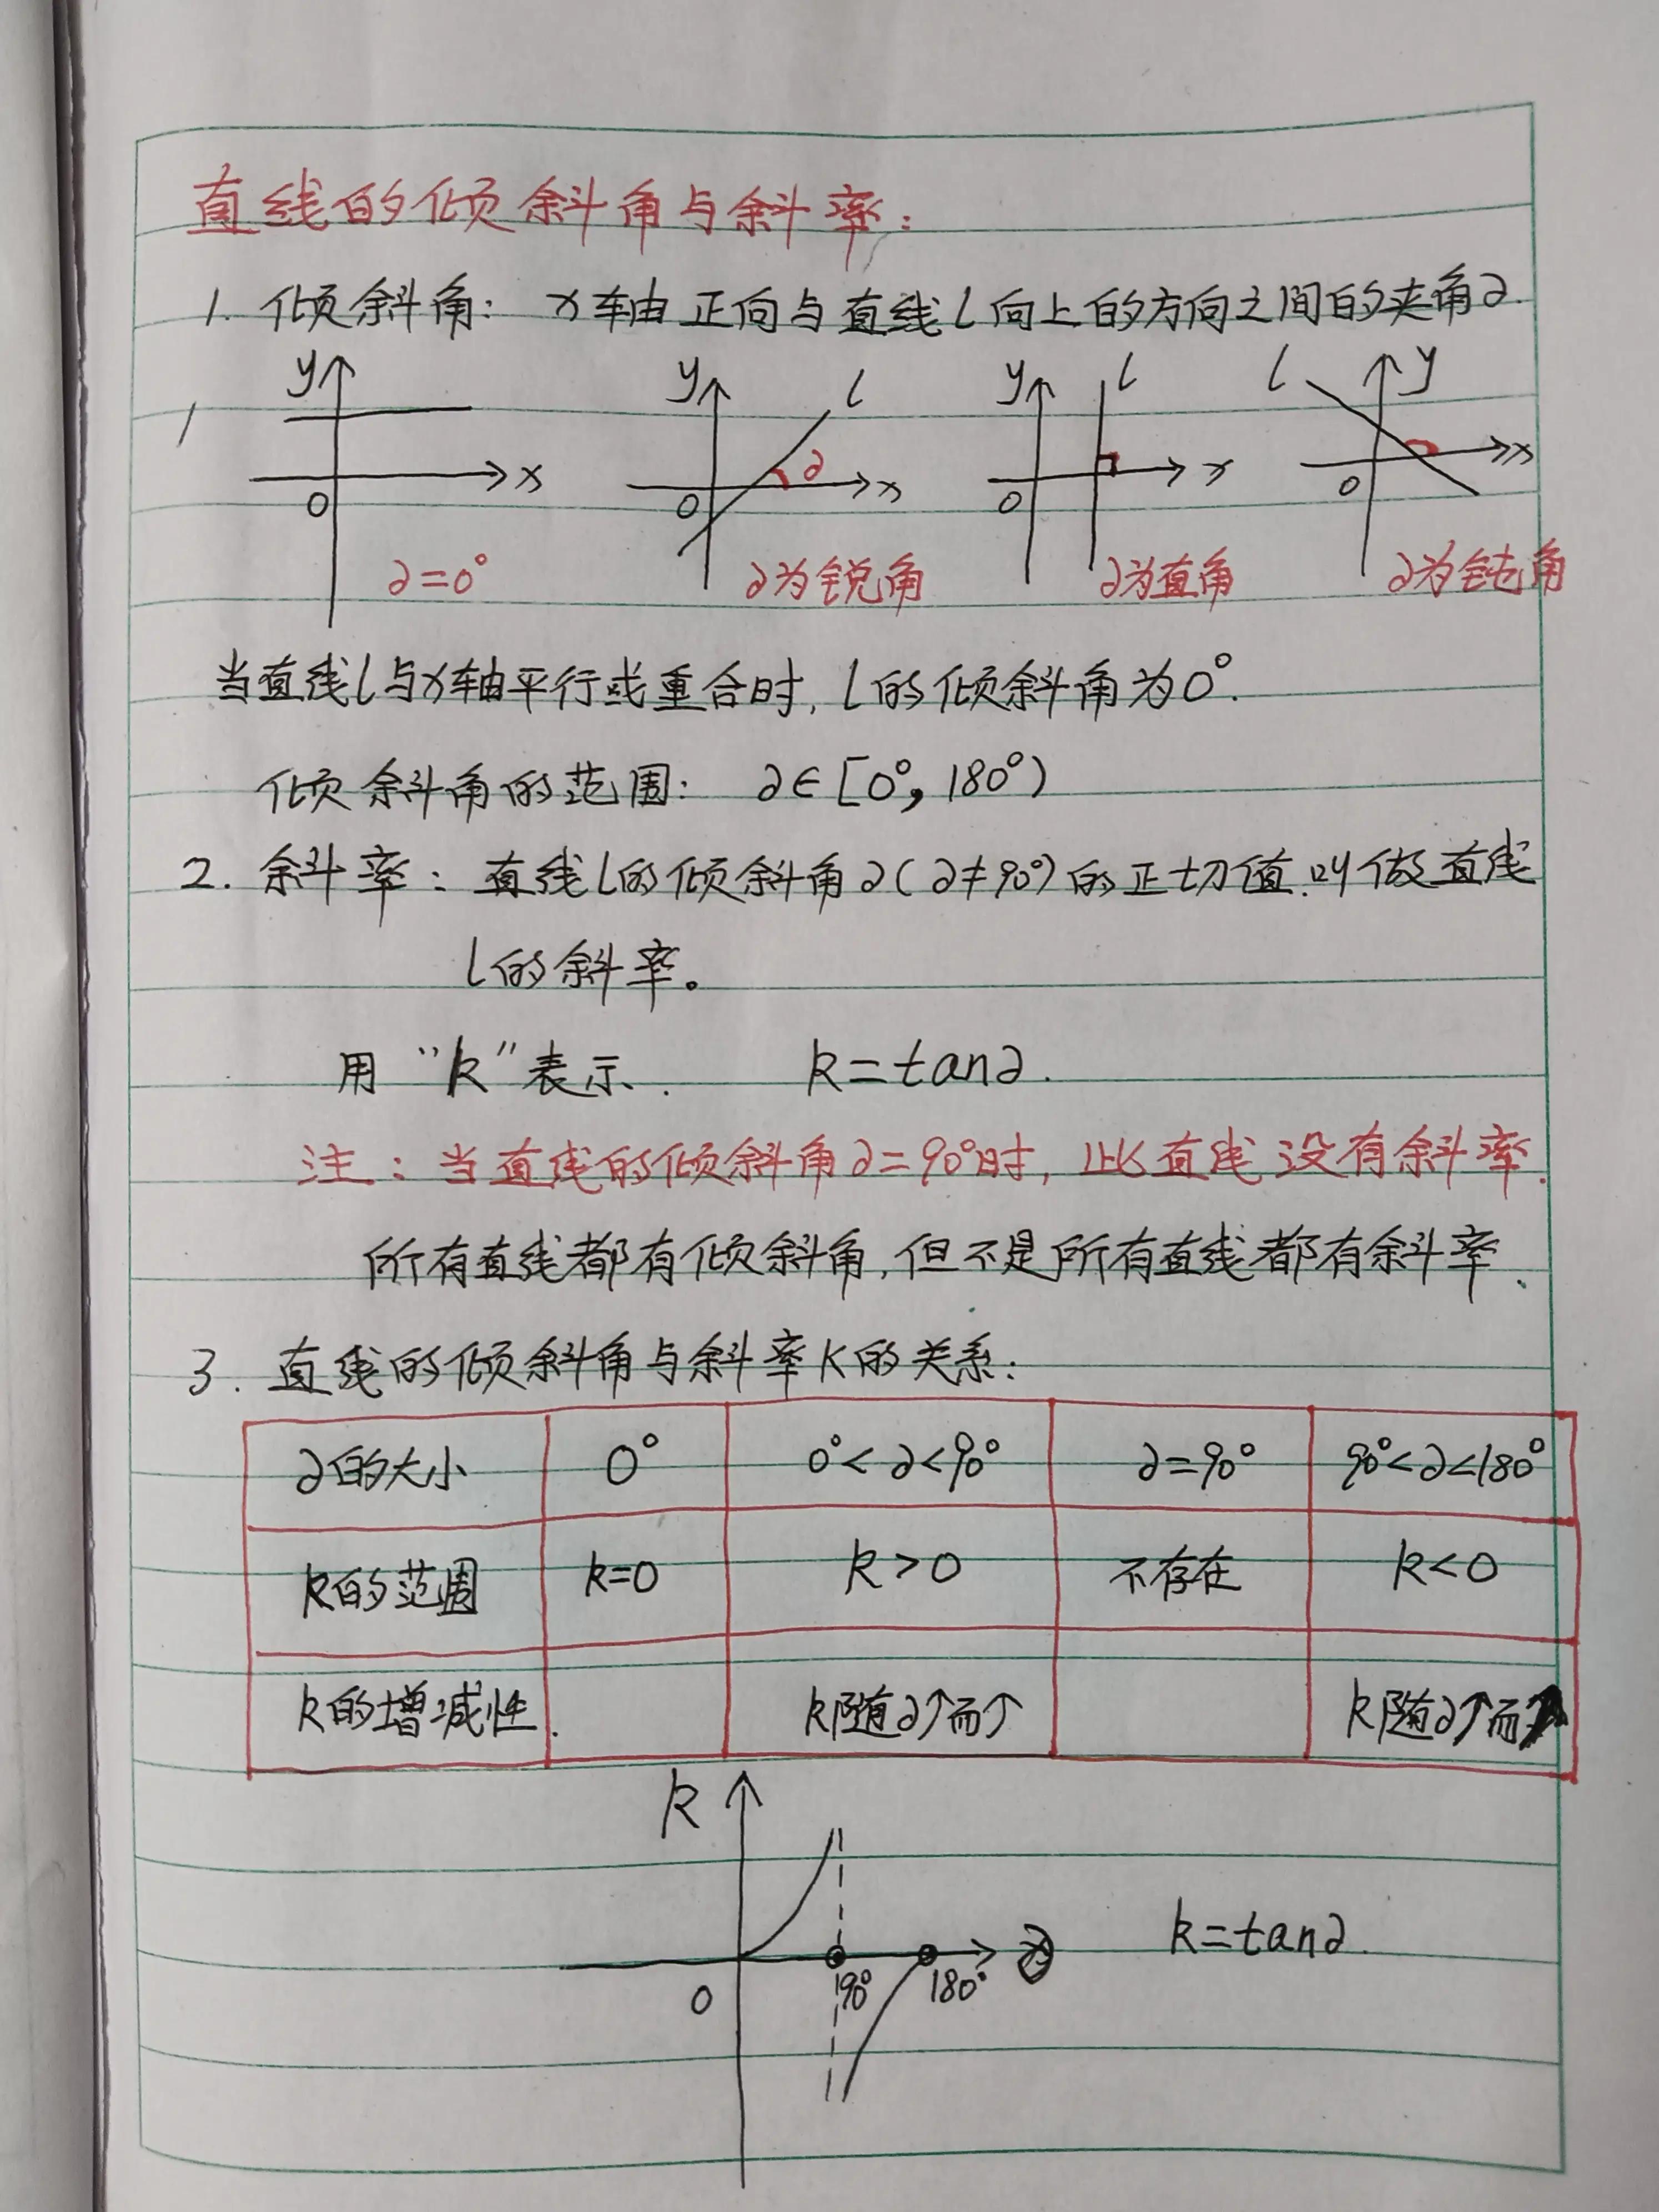 直线的倾斜角与斜率:
1. 倾斜角: x轴正向与直线l向上的方向之间的夹角∂.
y x 0 ∂=0°
y l ∂ x 0 ∂为锐角
y l x 0 ∂为直角
l y x 0 ∂为钝角
当直线l与x轴平行或重合时, l的倾斜角为0°.
倾斜角的范围: ∂∈[0°, 180°)
2. 斜率: 直线l的倾斜角∂(∂≠90°)的正切值.叫做直线
l的斜率。
用“k”表示. k=tan∂.
注: 当直线的倾斜角∂=90°时, 此直线没有斜率.
所有直线都有倾斜角,但不是所有直线都有斜率、
3. 直线的倾斜角与斜率K的关系:
∂的大小 0° 0°<∂<90° ∂=90° 90°<∂<180°
k的范围 k=0 k>0 不存在 k<0
k的增减性. k随∂↑而↑ k随∂↑而↑
k
k=tan∂.
0 90° 180°